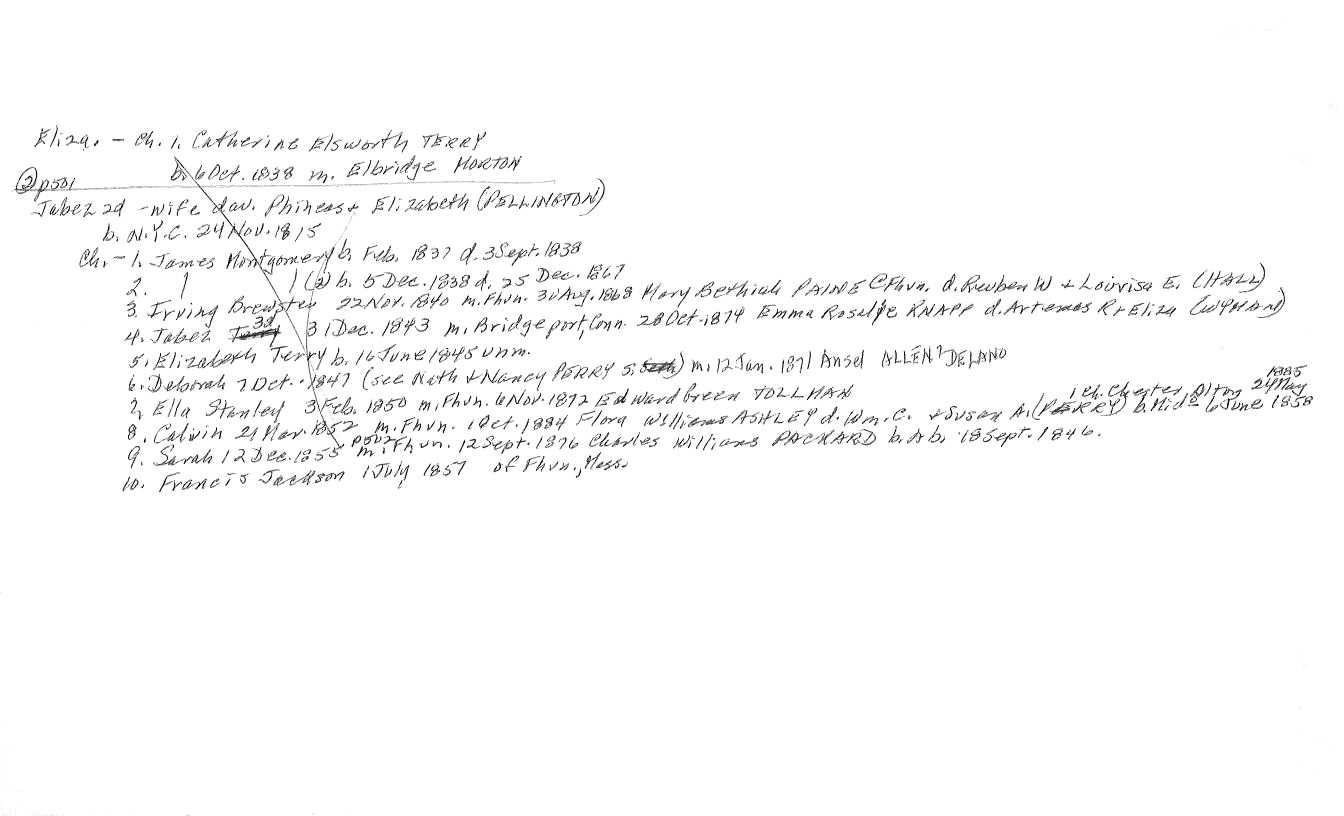 Eliza. - Ch. 1. Catherine Elsworth TERRY
b. 6 Oct. 1838 m. Elbridge MORTON
② p501
Jabez 2d - wife dau. Phineas + Elizabeth (PELLINGTON)
b. N.Y.C. 24 Nov. 1815
Ch. - 1. James Montgomery b. Feb. 1837 d. 3 Sept. 1838
2. " " (2) b. 5 Dec. 1838 d. 25 Dec. 1867
3. Irving Brewster 22 Nov. 1840 m. Fhvn. 30 Aug. 1868 Mary Bethiah PAINE @ Fhvn. d. Reuben W + Louvisa E. (HALL)
4. Jabez 3d 31 Dec. 1843 m. Bridgeport, Conn. 28 Oct. 1874 Emma Rosalie KNAPP d. Artemas R + Eliza (WYMAN)
5. Elizabeth Terry b. 16 June 1845 unm.
6. Deborah 7 Oct. 1847 (see Nath + Nancy PERRY 5.) m. 12 Jan. 1871 Ansel ALLEN? DELANO
7. Ella Stanley 3 Feb. 1850 m. Fhvn. 6 Nov. 1872 Edward Green TOLLMAN
1 Ch. Chester Alton 24 May 1885
8. Calvin 21 Mar. 1852 m. Fhvn. 1 Oct. 1884 Flora Williams ASHLEY d. Wm. C. + Susan A. (PERRY) b. Mid. 6 June 1858
9. Sarah 12 Dec. 1855 p502 m. Fhvn. 12 Sept. 1876 Charles Williams PACKARD b. A b. 18 Sept. 1846.
10. Francis Jackson 1 July 1857 of Fhvn., Mass.